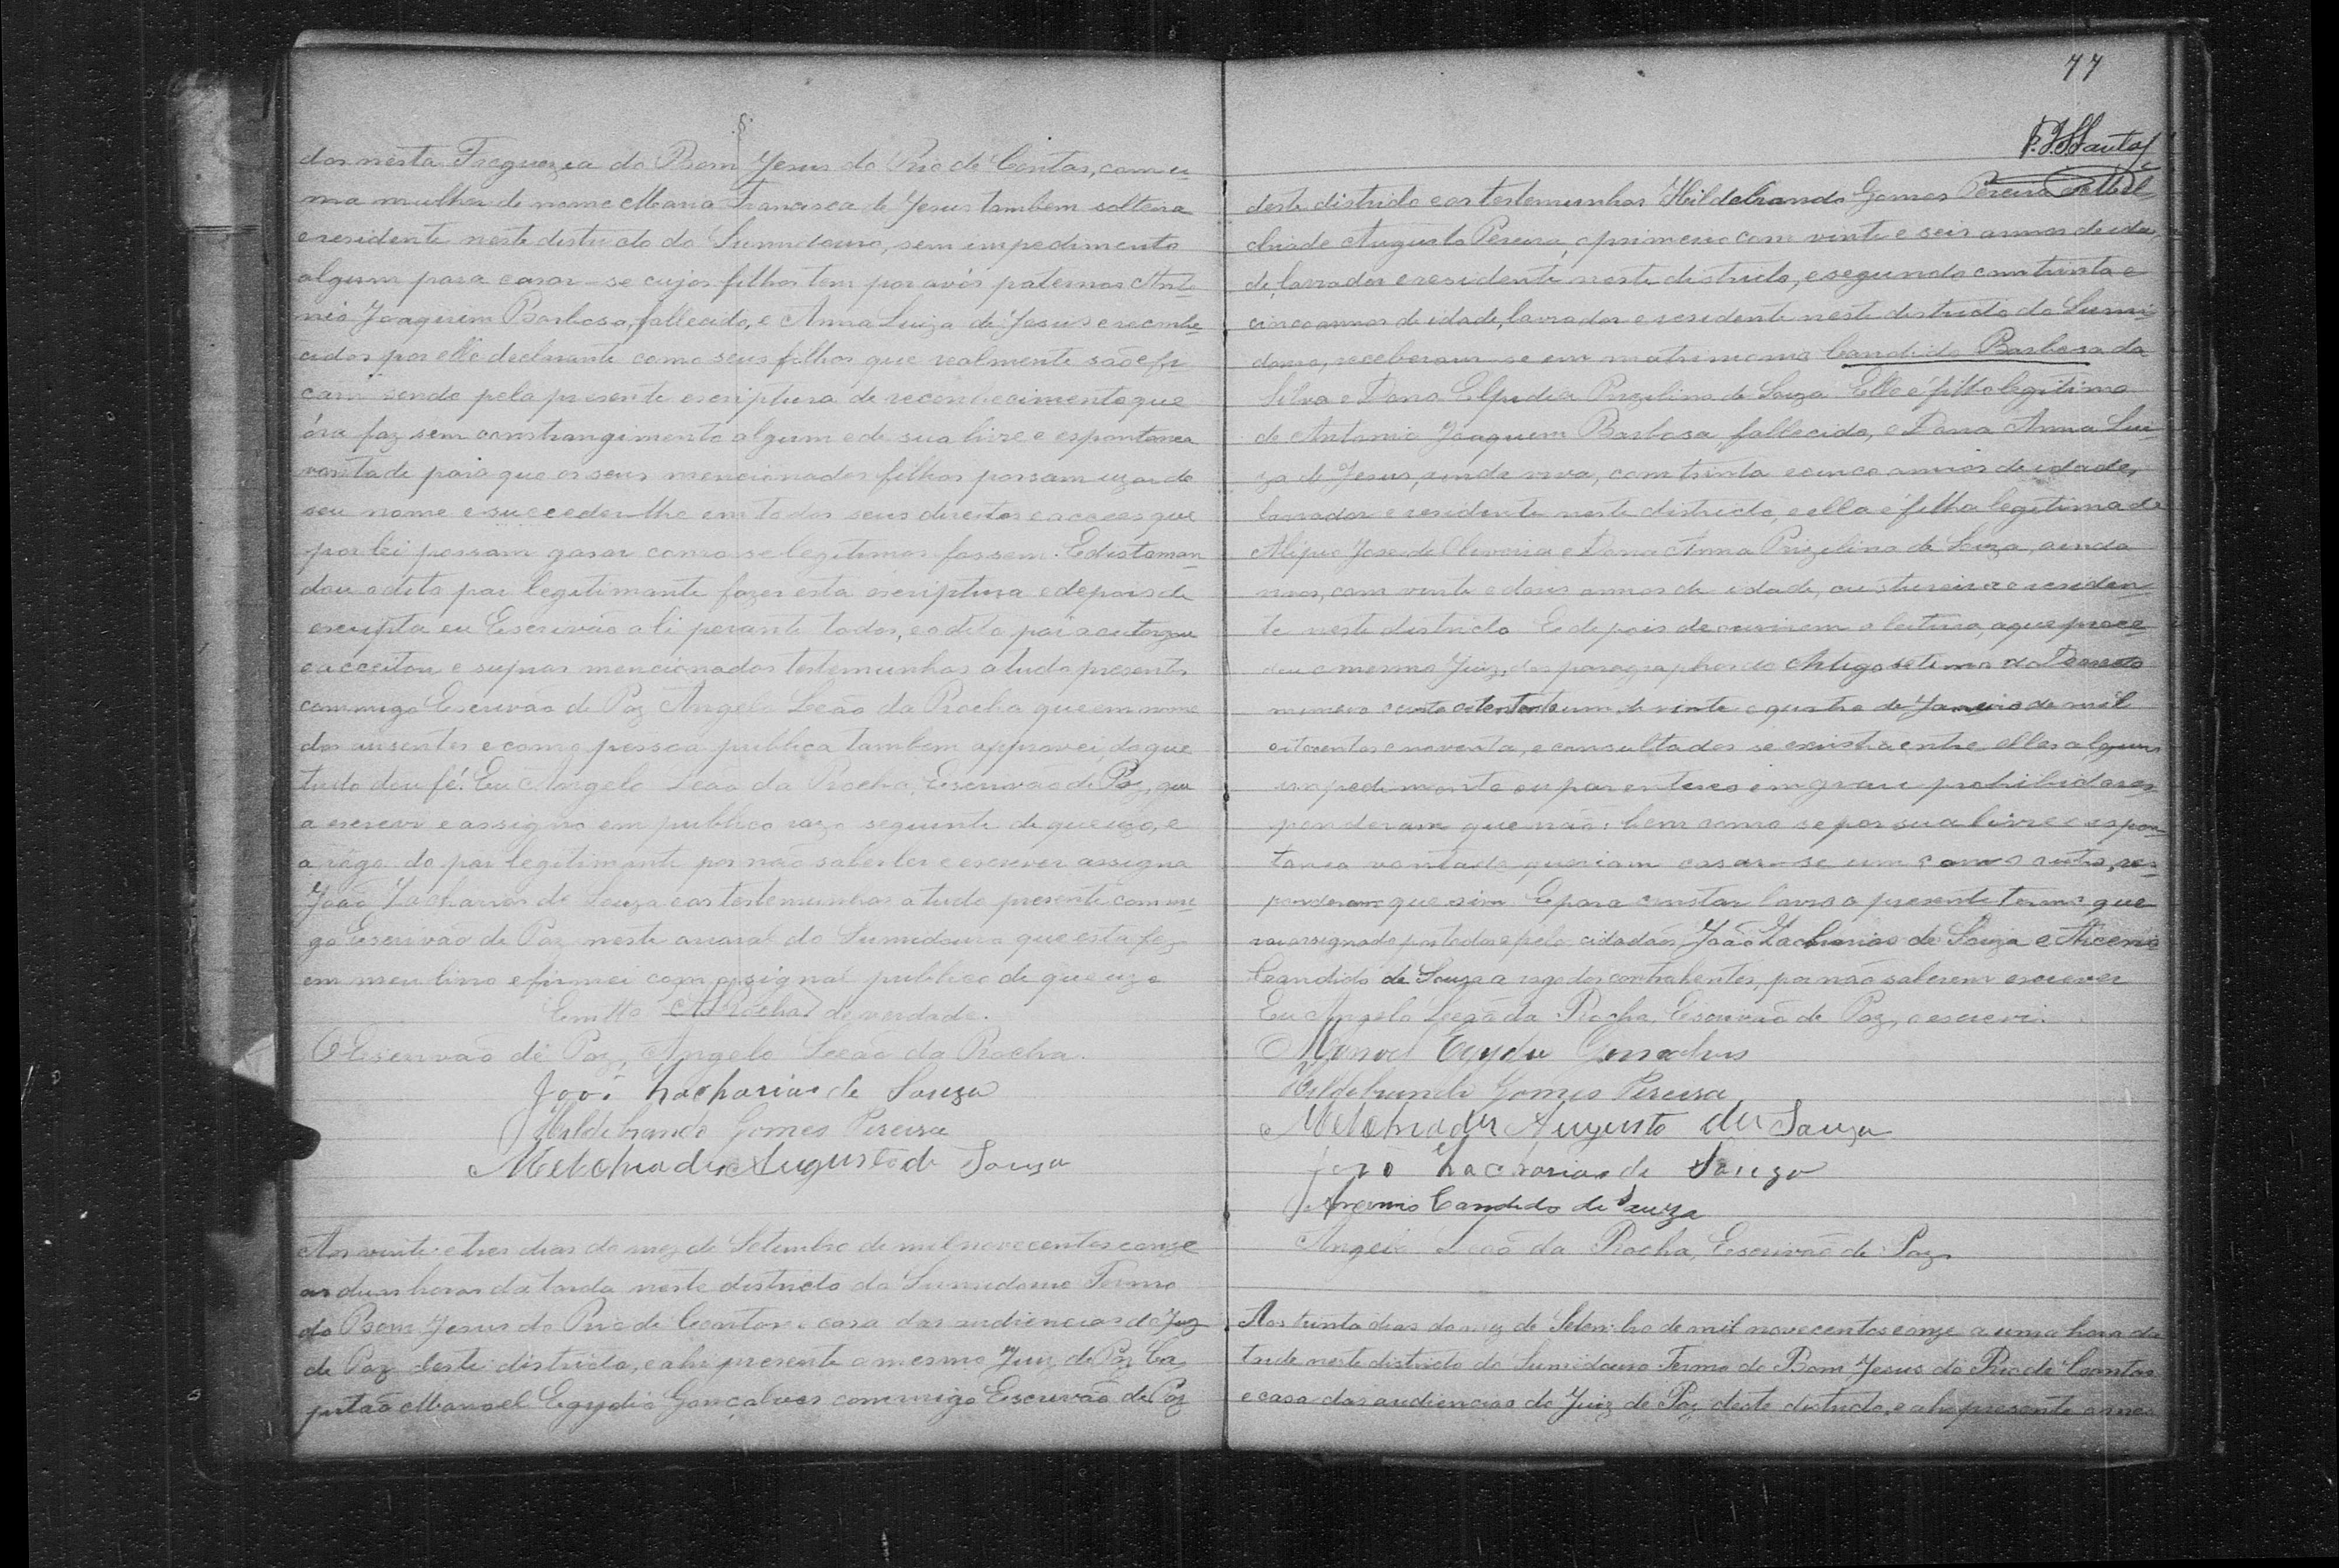 dos nesta Freguezia do Bom Jesus do Rio de Contas, com u-
ma mulher de nome Maria Francisca de Jesus tambem solteira
e residente neste districto do Sumidouro, sem impedimento
algum para casar-se cujos filhos tem por avós paternos Anto-
nio Joaquim Barbosa, fallecido, e Anna Luiza de Jesus e reconhe-
cidos por elle declarante como seus filhos que realmente são e fi-
cam sendo pela presente escriptura de reconhecimento que
óra faz sem constrangimento algum e de sua livre e espontanea
vontade para que os seus mencionados filhos possam uzar do
seu nome e succeder-lhe em todos seus direitos e acções que
por lei possam gosar como se legitimos fossem. E disto man-
dou o dito pai legitimante fazer esta escriptura e depois de
escripta eu Escrivão a li perante todos, e o dito pai a outorgou
e acceitou e supras mencionados testemunhas a tudo presentes
commigo Escrivão de Paz Angelo Leão da Rocha que em nome
dos ausentes e como pessoa publica tambem approvei, do que
tudo dou fé. Eu Angelo Leão da Rocha, Escrivão de Paz, que
a escrevi e assigno em publico razo seguinte de que uzo, e
a rogo do pai legitimante por não saber ler e escrever assigna
João Zacharias de Souza e as testemunhas a tudo presente commi-
go Escrivão de Paz neste arraial do Sumidouro que esta fiz
em meu livro e firmei com o signal publico de que uzo
Em tto ALRocha de verdade.
O Escrivão de Paz, Angelo Leão da Rocha.
João Zacharias de Souza
Hildebrando Gomes Pereira
Melchiades Augusto de Souza
Aos vinte e tres dias do mez de Setembro de mil novecentos e onze
as duas horas da tarde neste districto do Sumidouro Termo
do Bom Jesus do Rio de Contas e casa das audiencias do Juiz
de Paz deste districto, e ahi presente o mesmo Juiz de Paz Ca-
pitão Manoel Egydio Gonçalves commigo Escrivão de Paz
77
deste districto e as testemunhas Hildebrando Gomes Pereira e Mel-
chiade Augusto Pereira, o primeiro com vinte e seis annos de ida-
de, lavrador e residente neste districto, e segundo com trinta e
cinco annos de idade, lavrador e residente neste districto do Sumi-
douro, receberam-se em matrimonio Candido Barbosa da
Silva e Dona Elpidia Purzilina de Souza. Elle é filho legitimo
de Antonio Joaquim Barbosa fallecido, e Dona Anna Lui-
za de Jesus, ainda viva, com trinta e cinco annos de idade,
lavrador e residente neste districto, e ella é filha legitima de
Alipio José de Oliveira e Dona Anna Purzilina de Souza, ainda
vivos, com vinte e dous annos de idade, custureira e residen-
te neste districto. E depois de ouvirem a leitura, a que proce-
deu o mesmo Juiz, dos paragraphos do Artigo setimo do Decreto
numero cento e oitenta e um de vinte e quatro de Janeiro de mil
oitocentos e noventa, e consultados se existia entre elles algum
impedimento ou parentesco em grau prohibido res-
ponderam que não: bem como se por sua livre e espon-
tanea vontade queriam casar-se um com o outro, res-
ponderam que sim. E para constar lavro o presente termo que
vai assignado por todos e pelo cidadãos João Zacharias de Souza e
Candido de Souza a rogo dos contrahentes, por não saberem escrever
Eu Angelo Leão da Rocha, Escrivão de Paz, o escrevi.
Manoel Egydio Gonsalves
Hildebrando Gomes Pereira
Melchiades Augusto de Souza
João Zacharias de Souza
Candido de Souza
Angelo Leão da Rocha, Escrivão de Paz
Aos trinta dias do mez de Setembro de mil novecentos e onze a uma hora da
tarde neste districto do Sumidouro Termo do Bom Jesus do Rio de Contas
e casa das audiencias do Juiz de Paz deste districto, e ahi presente o mes-